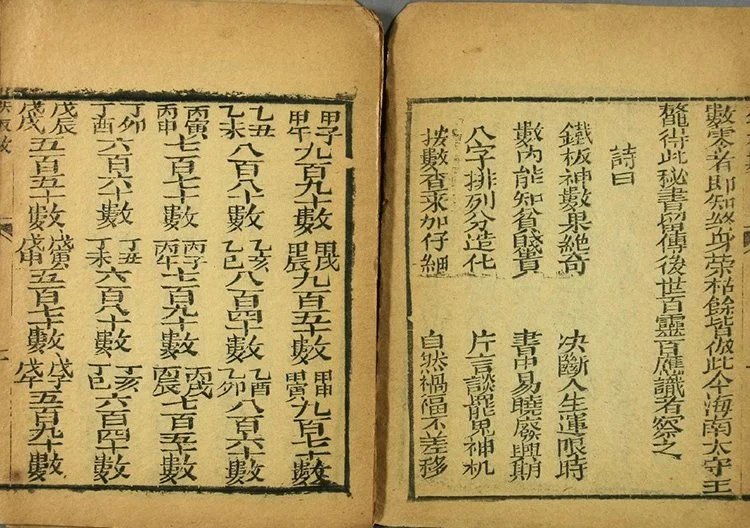 數零者即知終身榮枯餘皆倣此今海南太守王
鰲得此秘書留傳後世百靈百應識者察之
詩曰
鐵板神數果絕奇 决斷人生運限時
數內能知貧賤貴 書中易曉廢興期
八字排列分造化 片言談見神机
按數查求加仔細 自然禍福不差移
甲子甲午九百九十數 甲戌甲辰九百五十數 甲申甲寅九百七十數
乙丑乙未八百八十數 乙亥乙巳八百四十數 乙酉乙卯八百六十數
丙寅丙申七百七十數 丙子丙午七百九十數 丙戌丙辰七百五十數
丁卯丁酉六百六十數 丁丑丁未六百八十數 丁亥丁巳六百四十數
戊辰戊戌五百五十數 戊寅戊申五百七十數 戊子戊午五百九十數